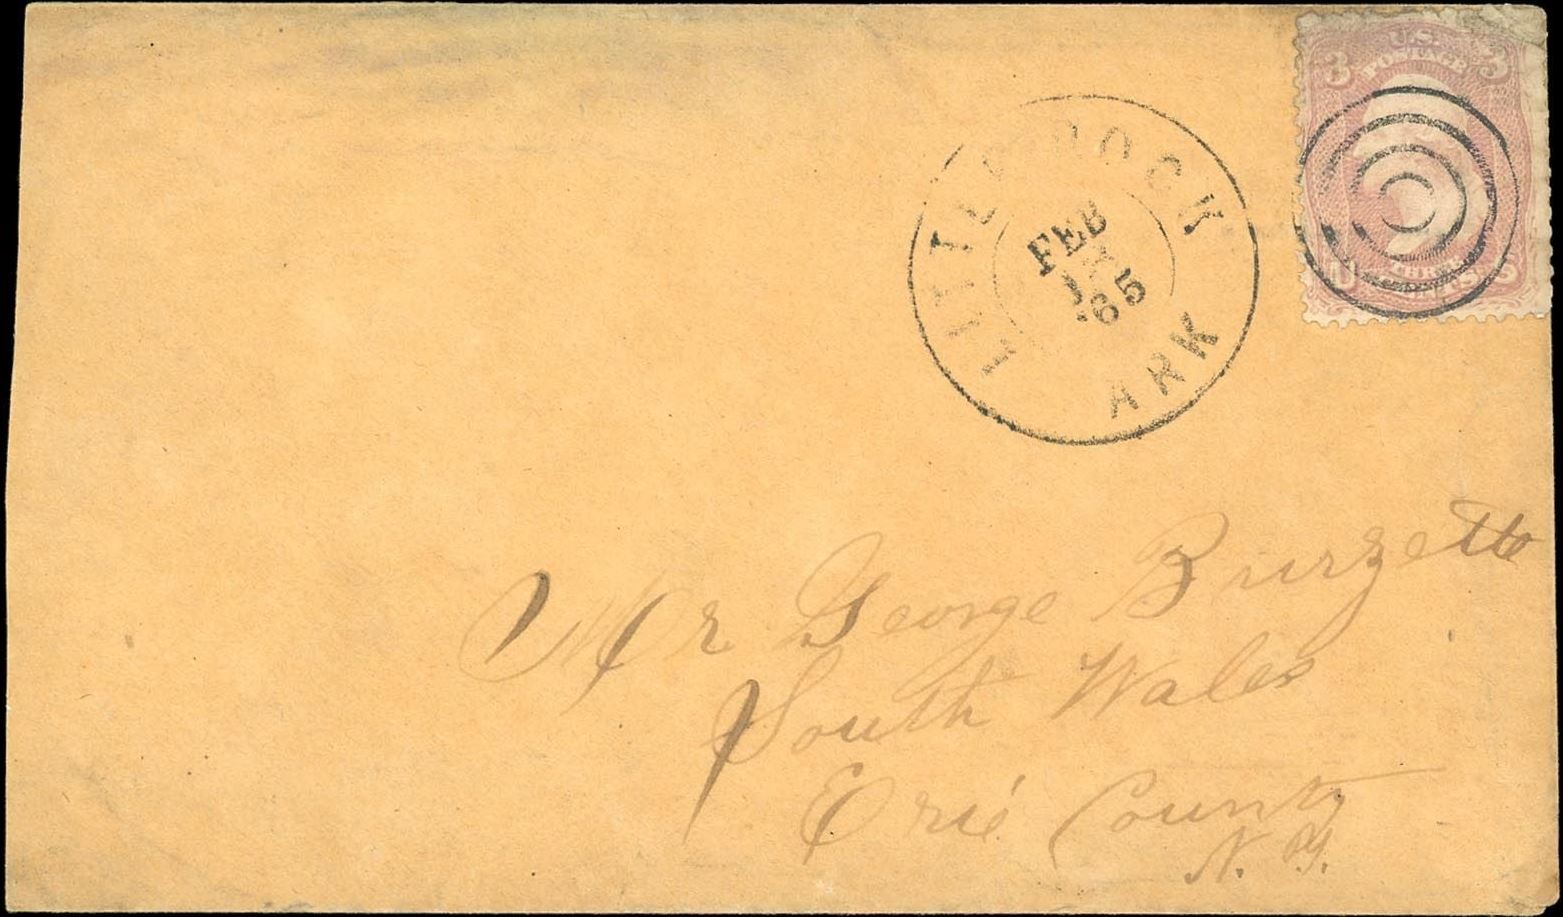 U.S.
POSTAGE
3 3
THREE
CENTS
LITTLE ROCK
FEB
'65
ARK
Mr George Burzette
South Wales
Erie County
N. Y.